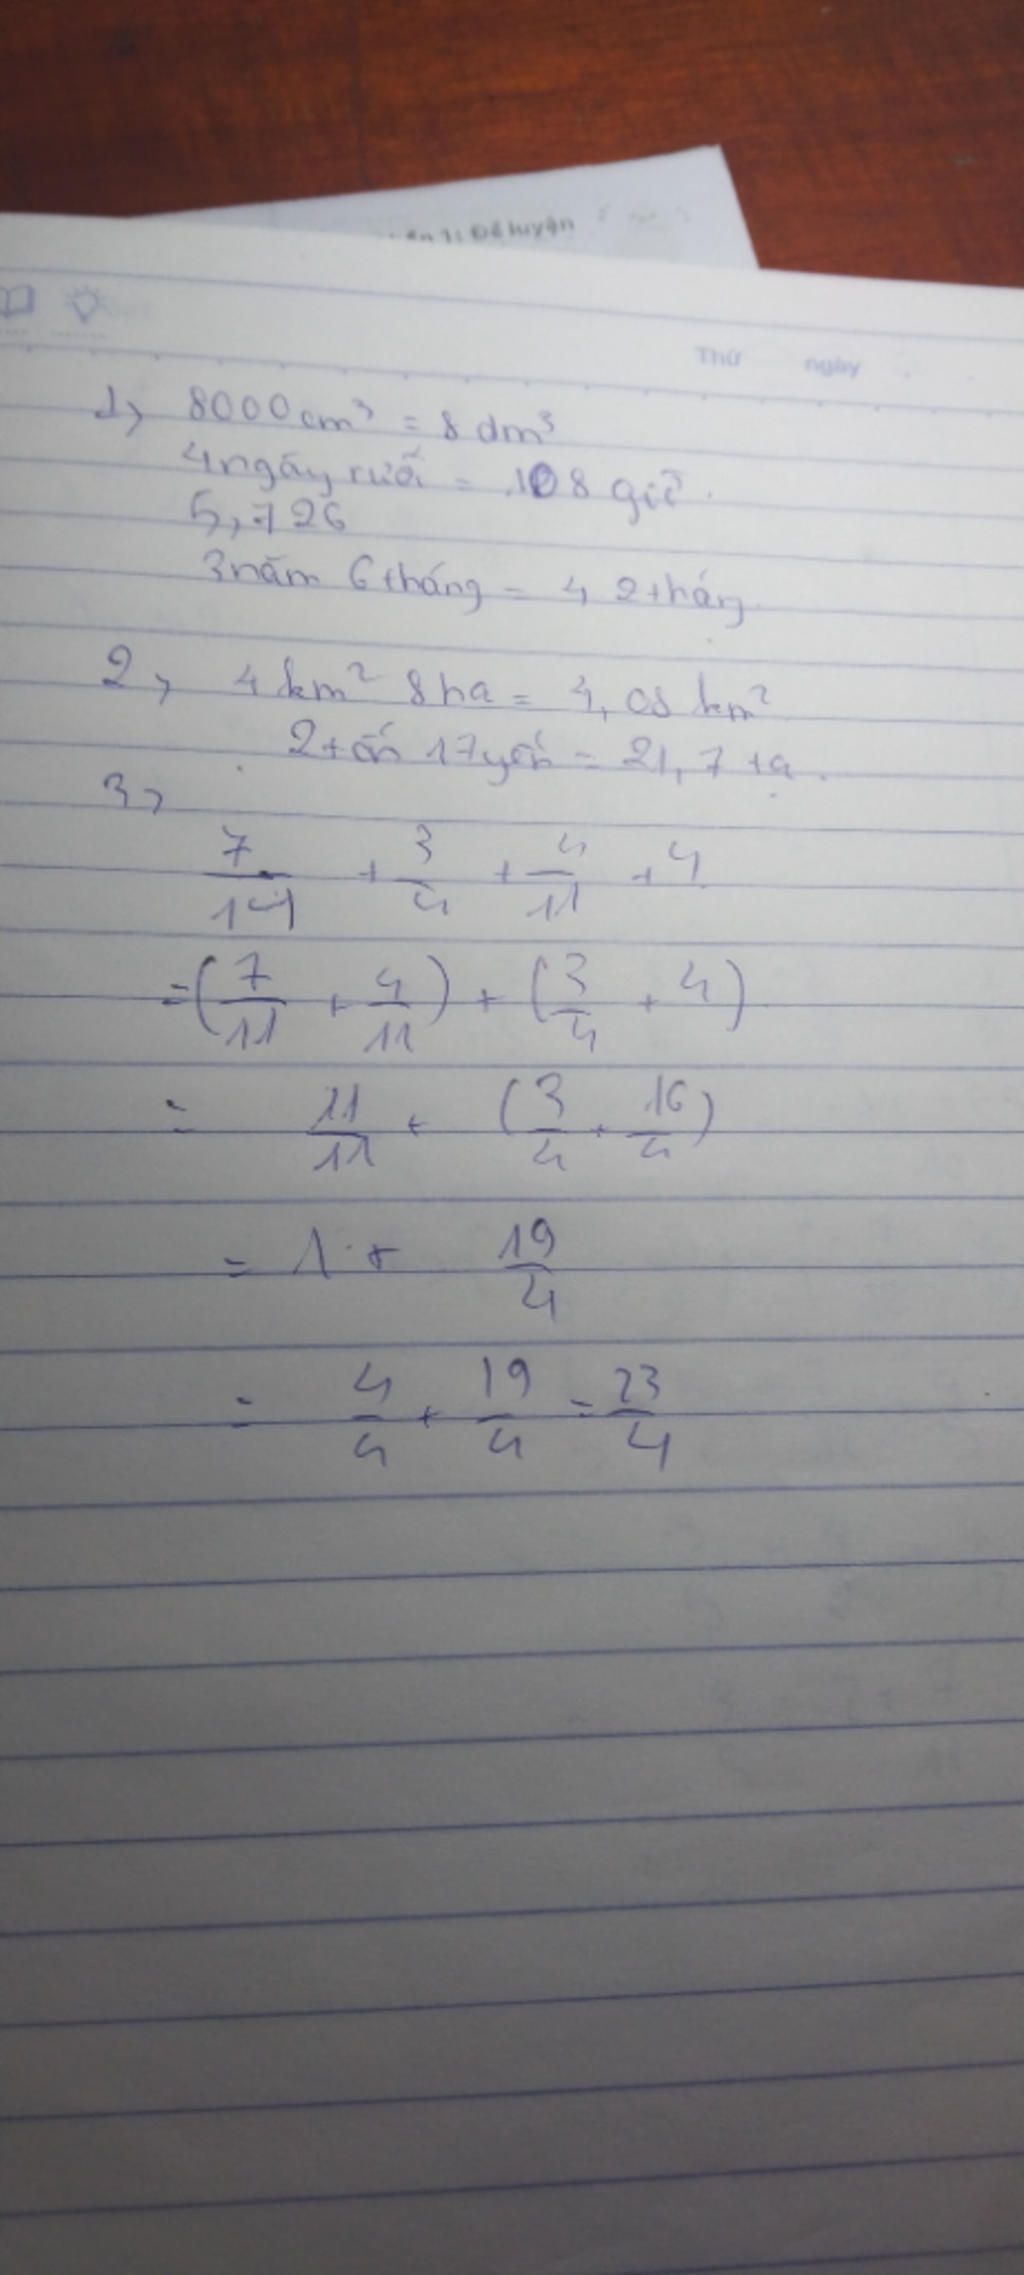 Đề luyện
Thứ ngày
1, 8000cm³ = 8 dm³
4 ngày rưỡi = 108 giờ.
5,726
3 năm 6 tháng = 42 tháng
2, 4 km² 8 ha = 4,08 km²
2 tấn 17 yến = 21,7 tạ.
3,
7/11 + 3/4 + 4/11 + 4
= (7/11 + 4/11) + (3/4 + 4)
= 11/11 + (3/4 + 16/4)
= 1 + 19/4
= 4/4 + 19/4 = 23/4